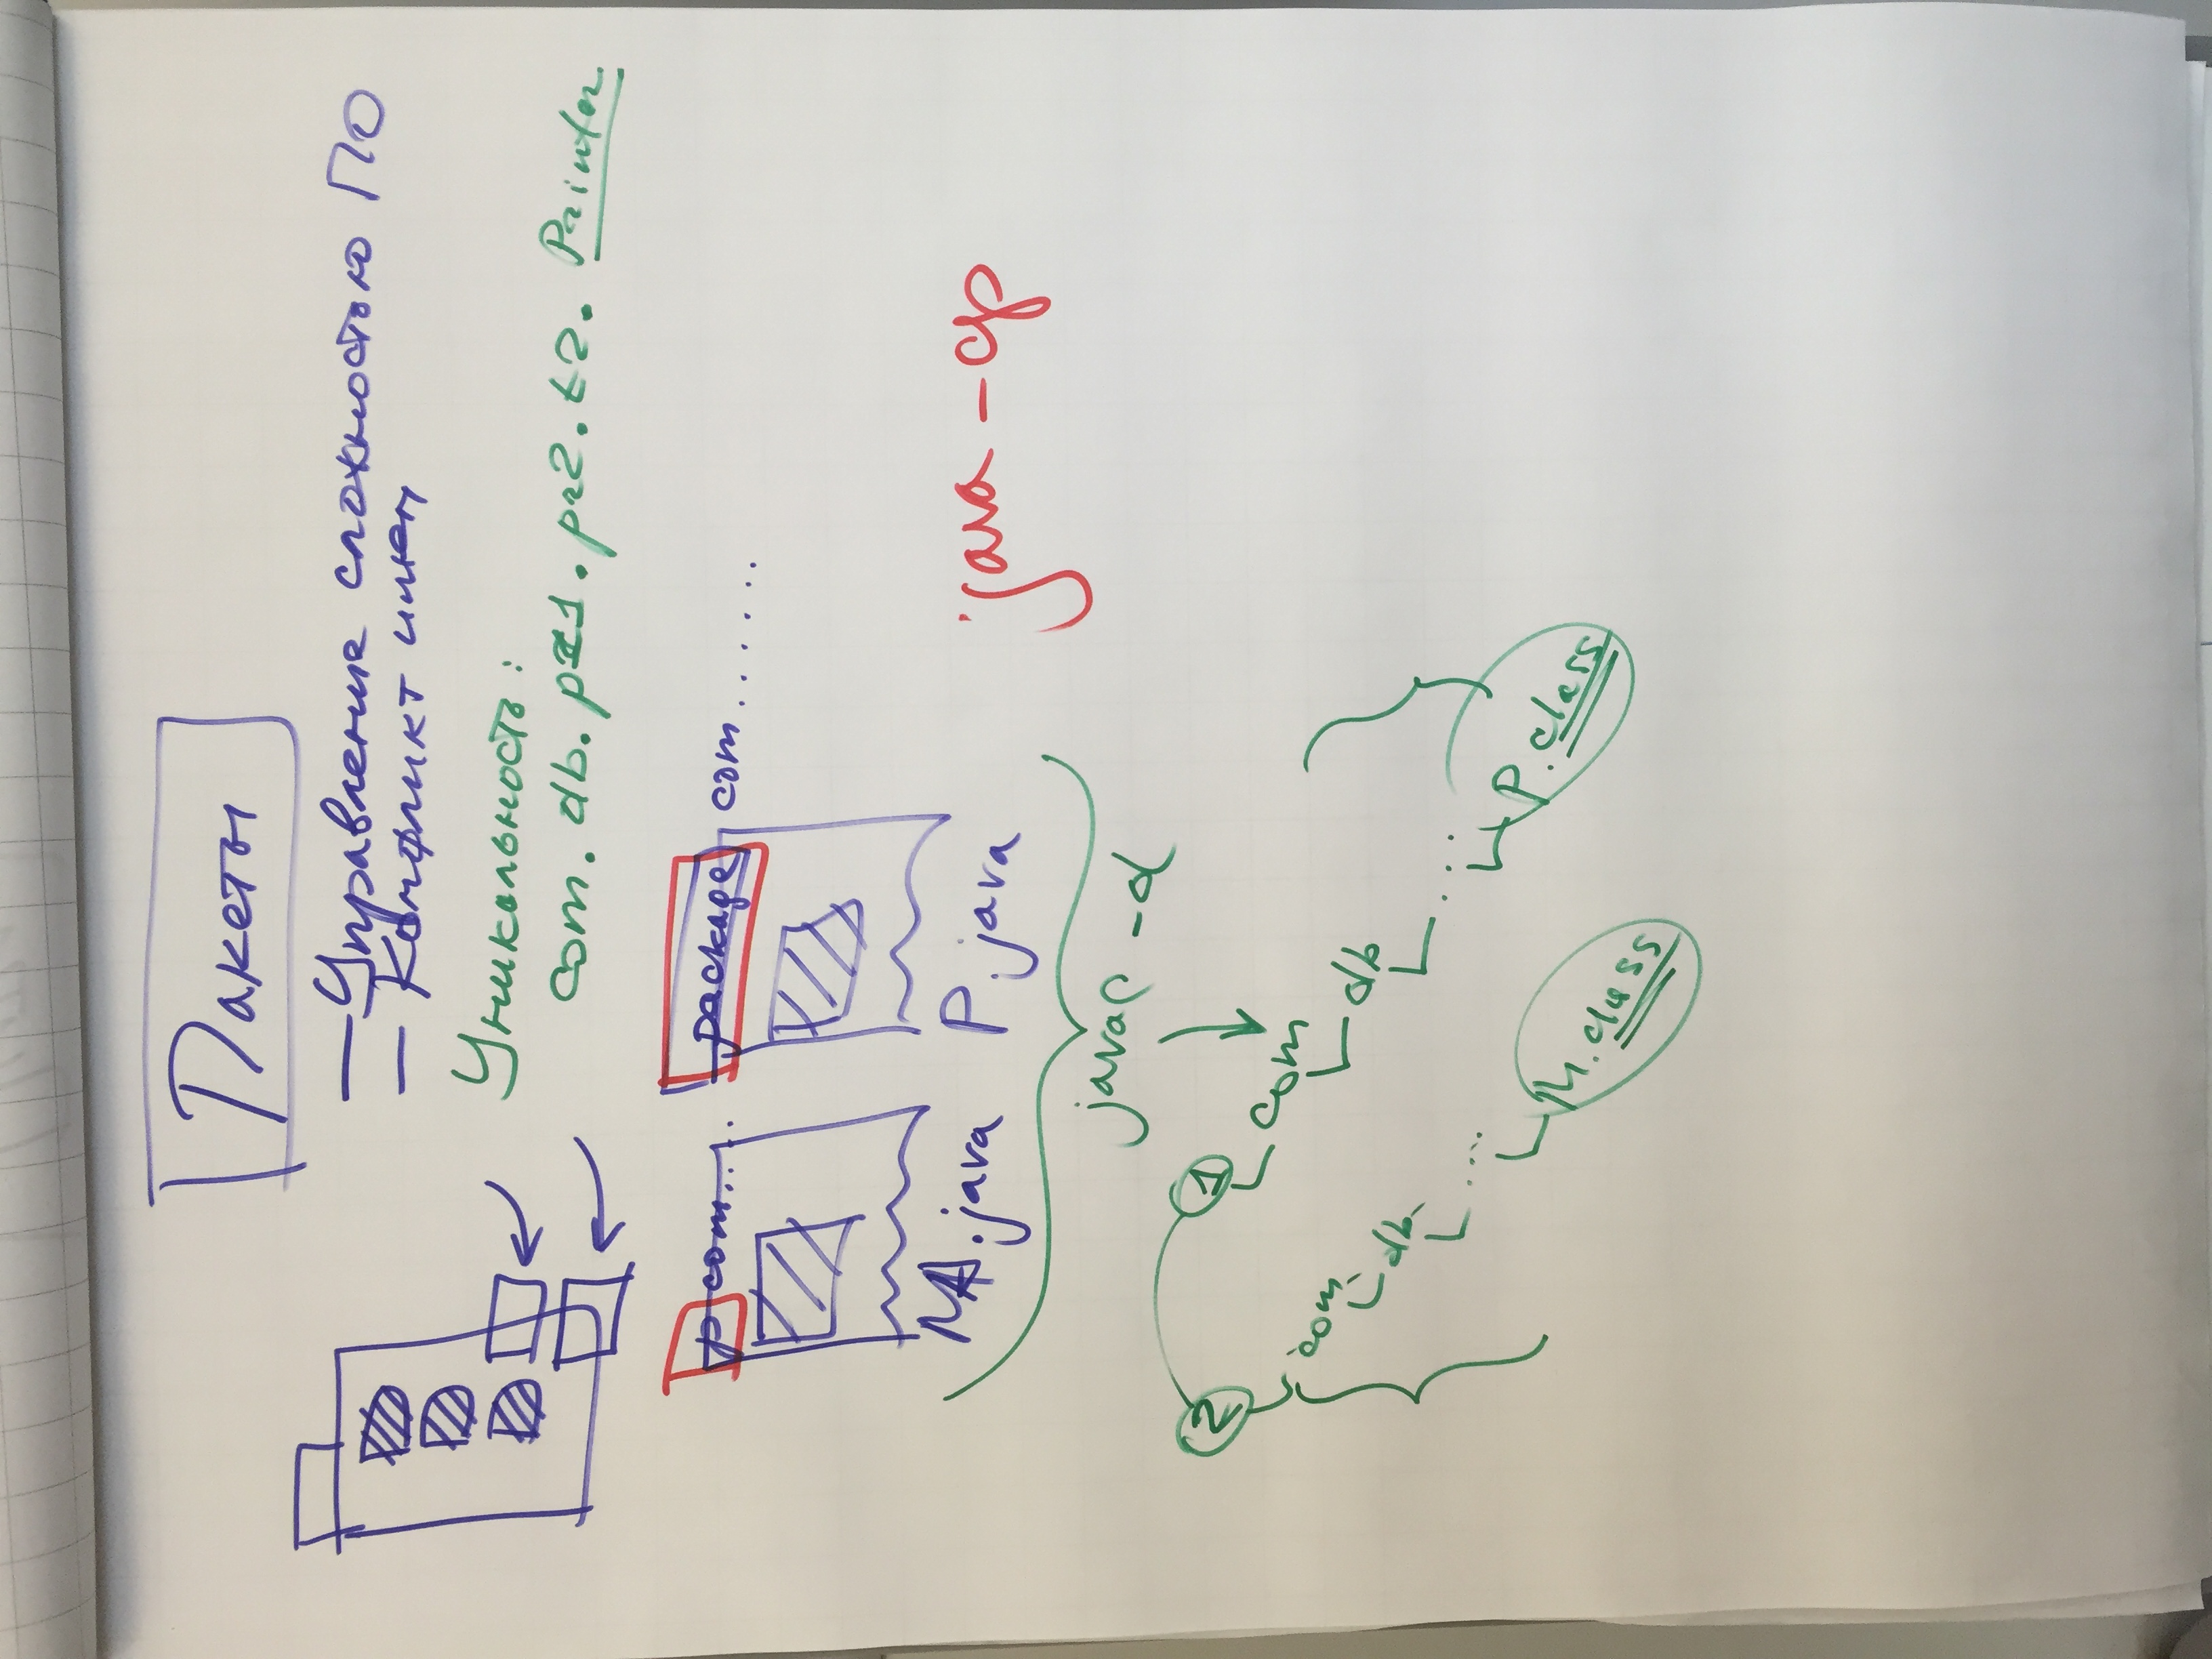 Пакеты
— Управление сложностью ПО
— Конфликт имен
Уникальность:
com. db. pr1. pr2. t2. Printer
p com.....
package com.......
MA.java P.java
java -cp
javac -d
2 1
com
com
db
db
...
...
P.class
M.class